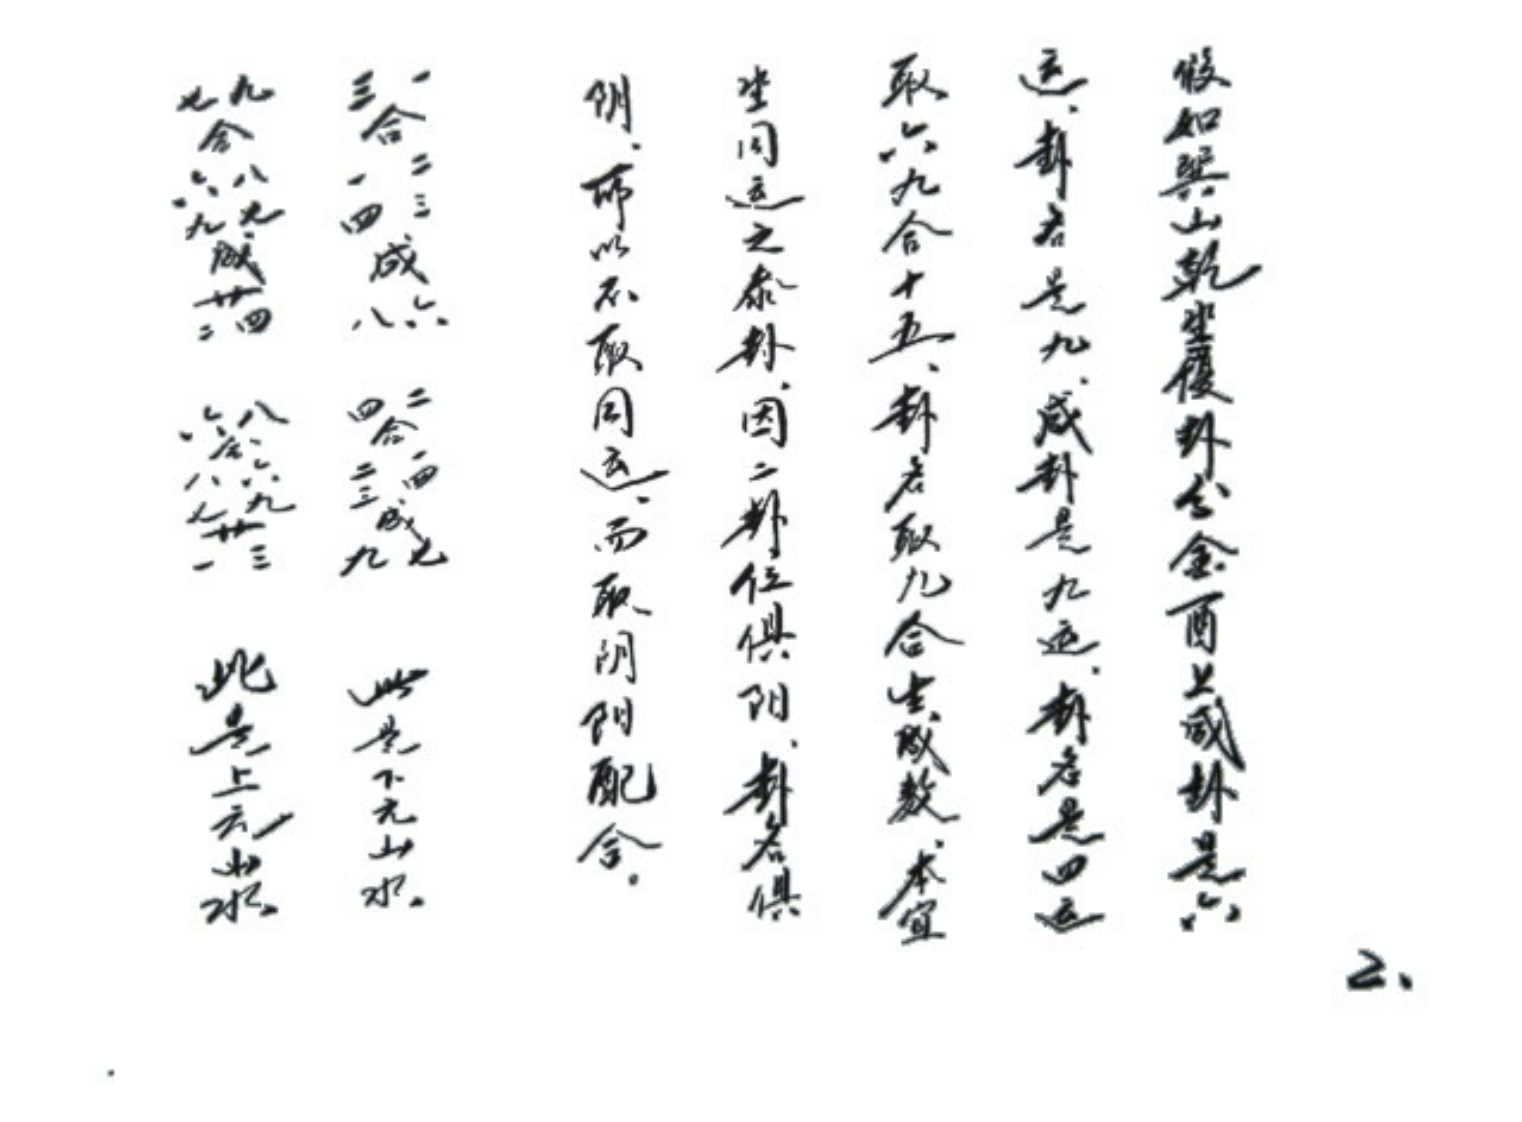 假如巽山乾坐履卦分金酉上咸卦是六
运、卦名是九、咸卦是九运、卦名是四运
取六九合十五、卦名取九合生成数、本宜
坐同运之泰卦、因二卦位俱阳、卦名俱
阴、所以不取同运、而取阴阳配合。
一三合二三一四成六八 二四合一四二三成七九 此是下元山水。
九七合八七六九成廿四二 八六合六九八七廿三一 此是上元山水。
2.